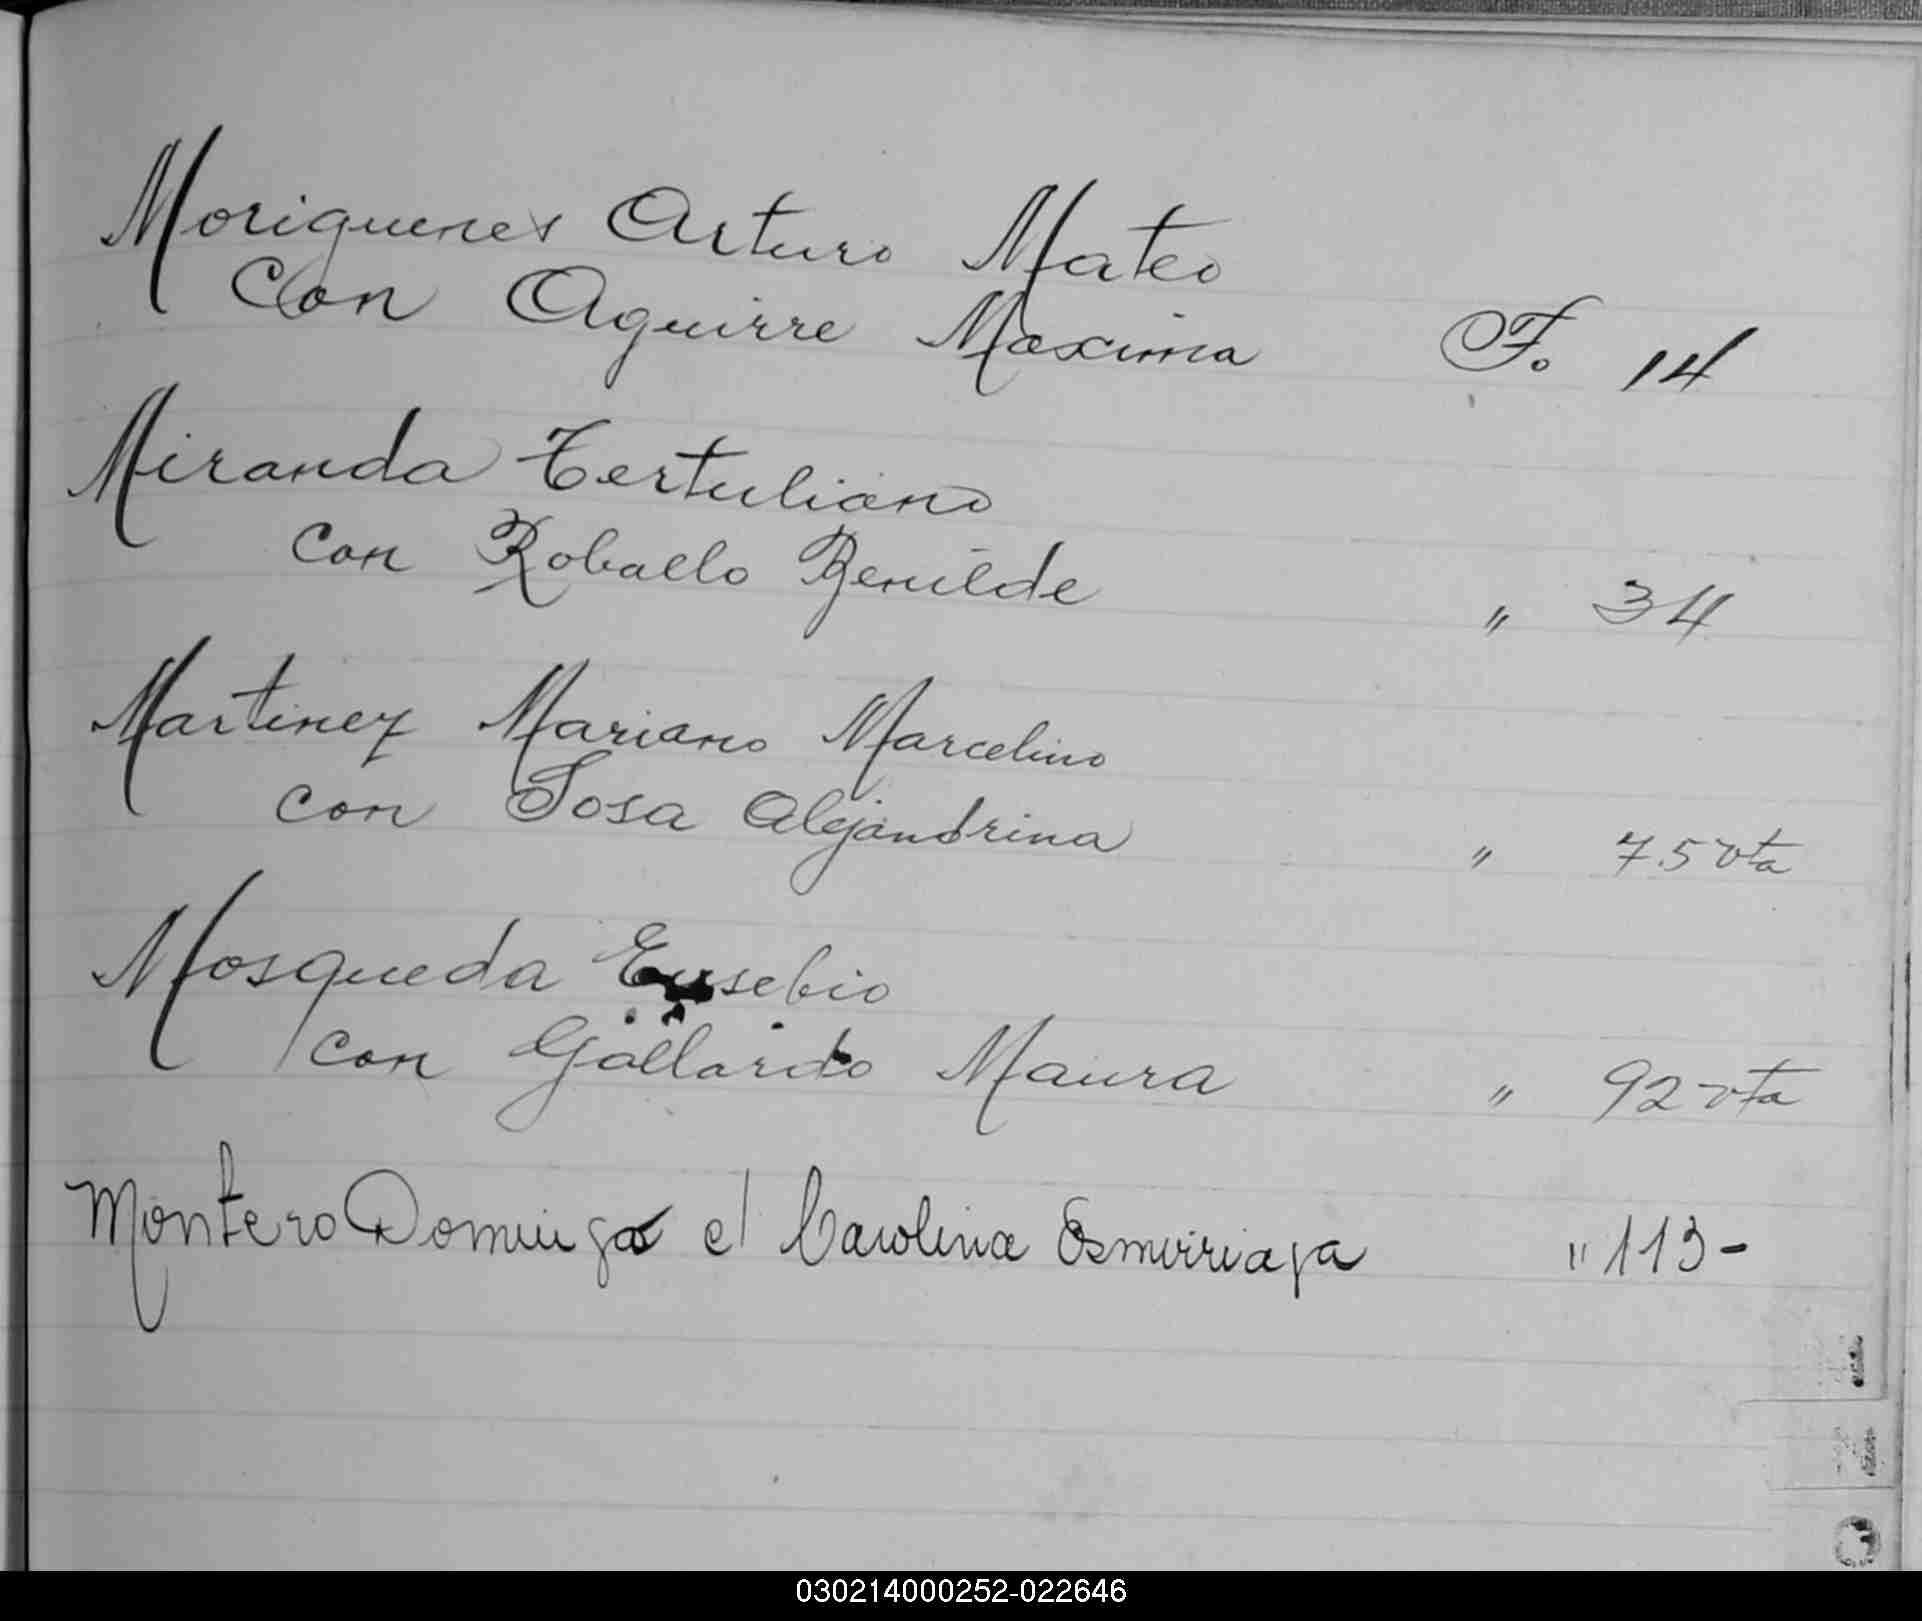 Morigueres Arturo Mateo
Con Aguirre Maxima F. 14
Miranda Tertuliano
con Roballo Benilde " 34
Martinez Mariano Marcelino
con Sosa Alejandrina " 75 vta
Mosqueda Eusebio
con Gallardo Maura " 92 vta
Montero Domingo c/ Carolina " 113-
030214000252-022646